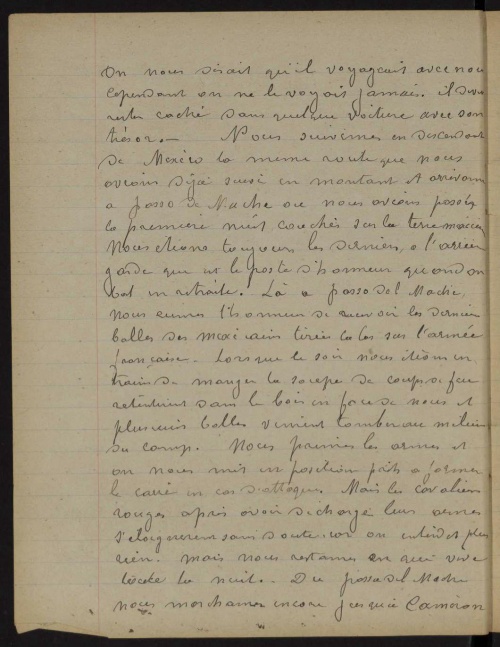 On nous disait qu'il voyageait avec nous
cependant on ne le voyait jamais. il devait
rester caché dans quelque voiture avec son
trésor. — Nous suivimes en descendant
de Mexico la meme route que nous
avions déjà suivi en montant et arrivames
a passo de Mache ou nous avions passés
la premiere nuit couchés sur la terre mexicaine
Nous etions toujours les derniers, a l'arriere
garde qui est le poste d'honneur quand on
bat en retraite. Là a passo del Mache,
nous eumes l'honneur de recevoir les dernieres
balles des mexicains tirées là bas sur l'armée
française. Lorsque le soir nous etions en
train de manger la soupe de coups de feu
retentirent dans le bois en face de nous et
plusieurs balles vinrent tomber au milieu
du camp. Nous primes les armes et
on nous mit en position prêts a former
le carré en cas d'attaque. Mais les cavaliers
rouges après avoir décharge leur armes
s'eloignerent sans doute car on entendit plus
rien. mais nous restames en qui vive
toute la nuit. Du passo del Mache
nous marchames encore jusqu'à Cameron